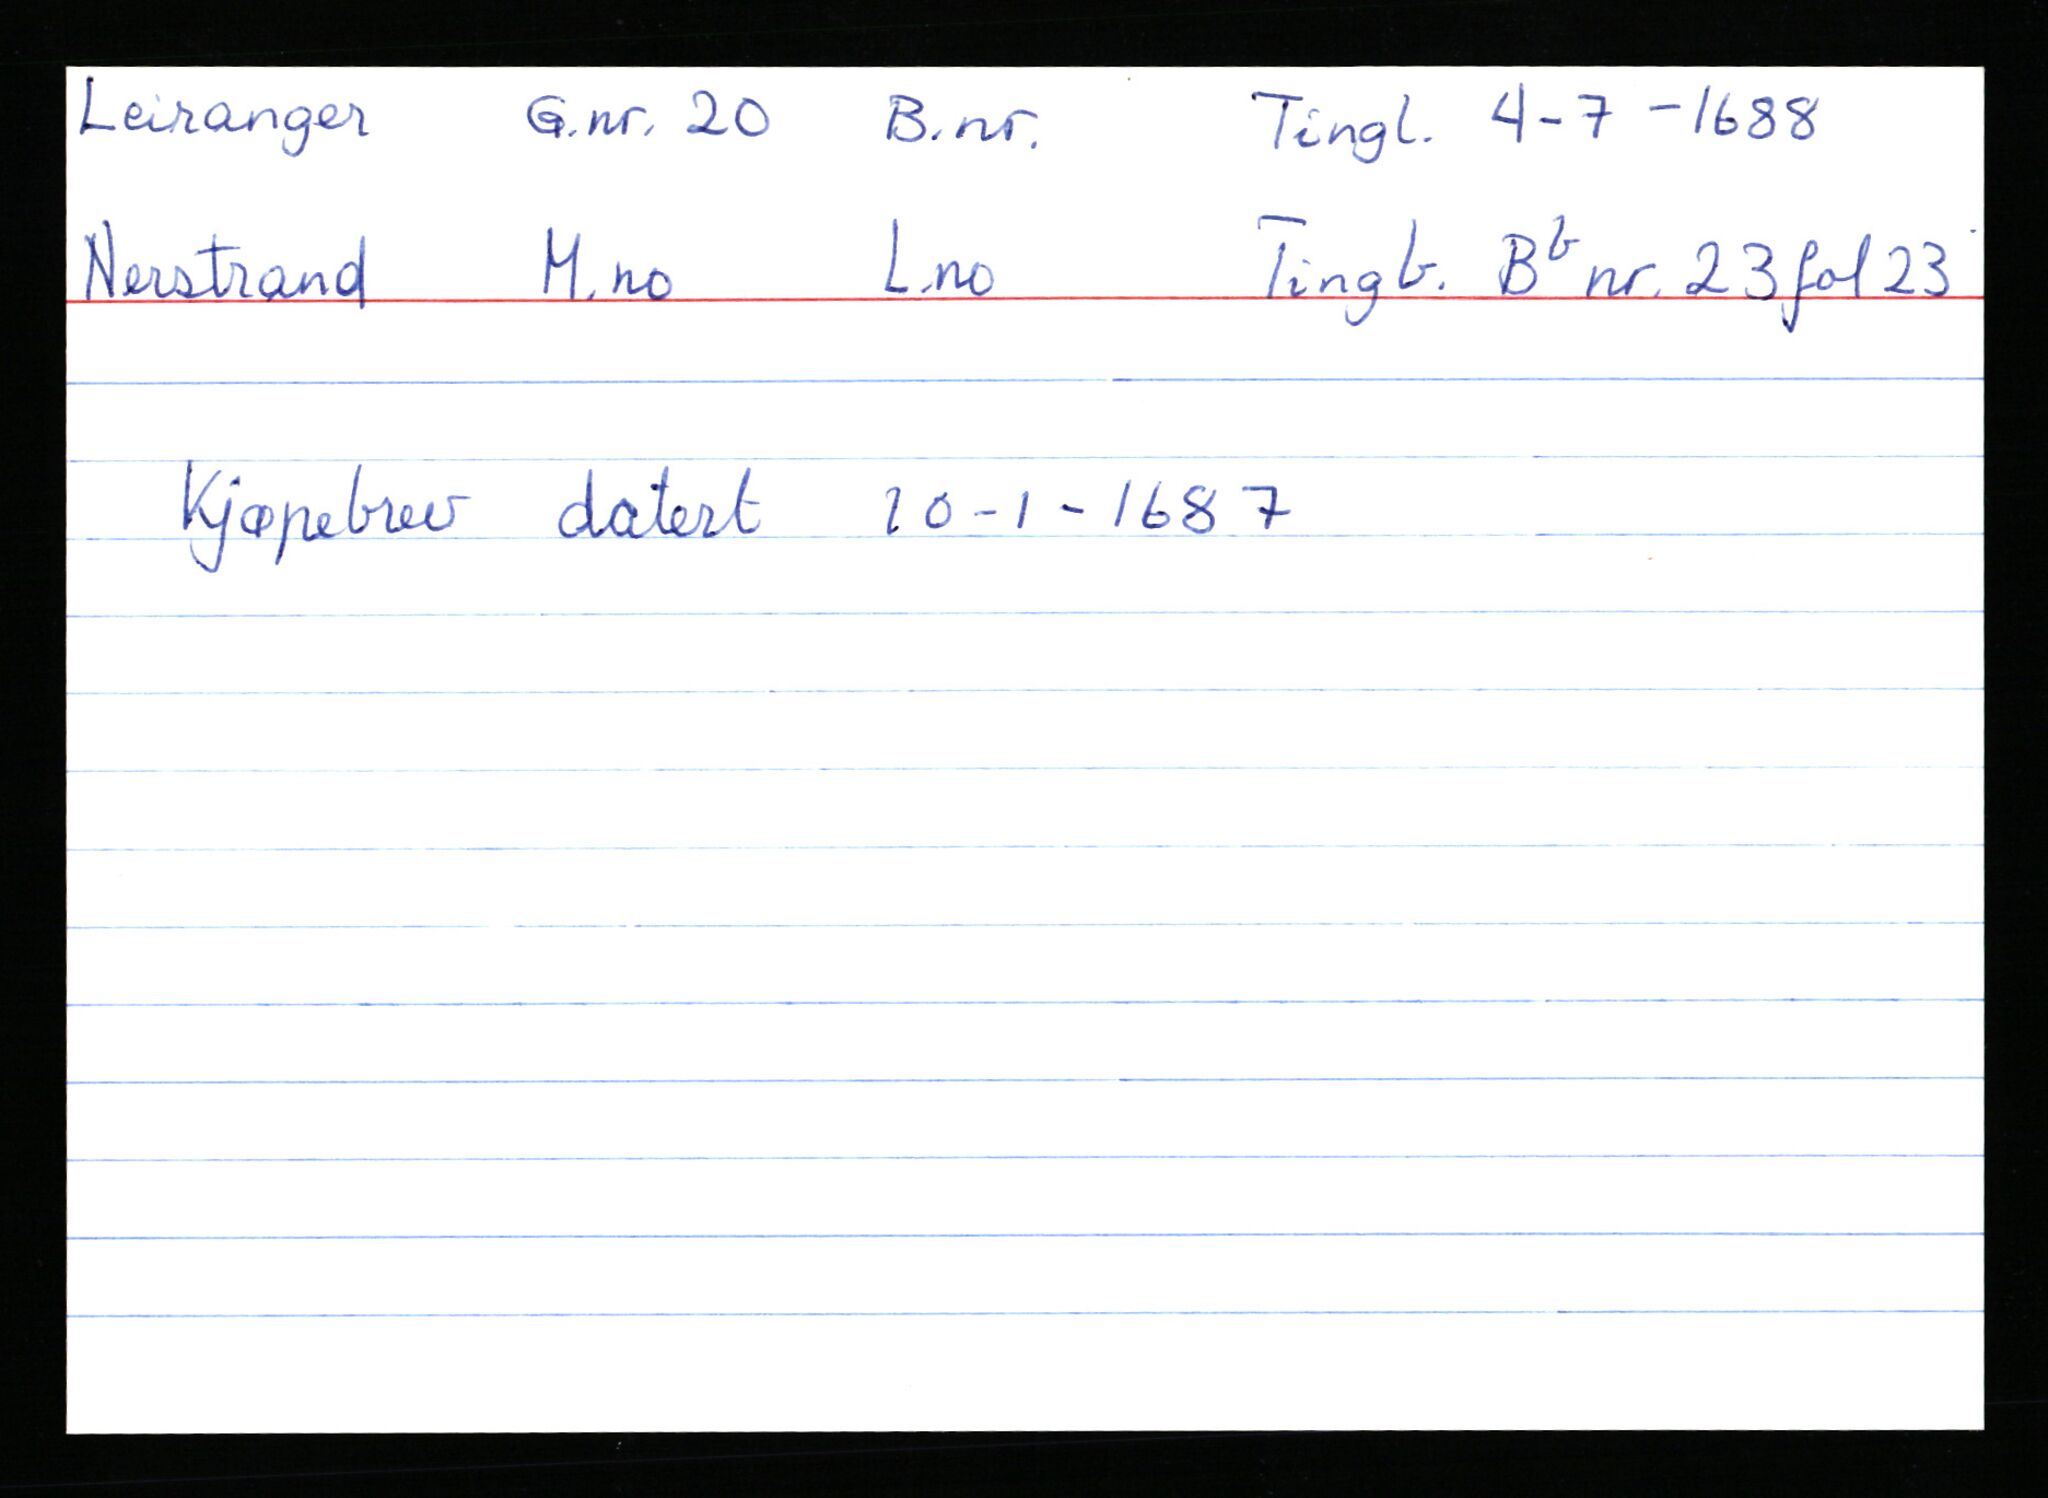 Leiranger G.nr. 20 B.nr. Tingl. 4-7-1688
Nerstrand M.no L.no Tingb. Bb nr. 23 fol 23
Kjøpebrev datert 20-1-1687